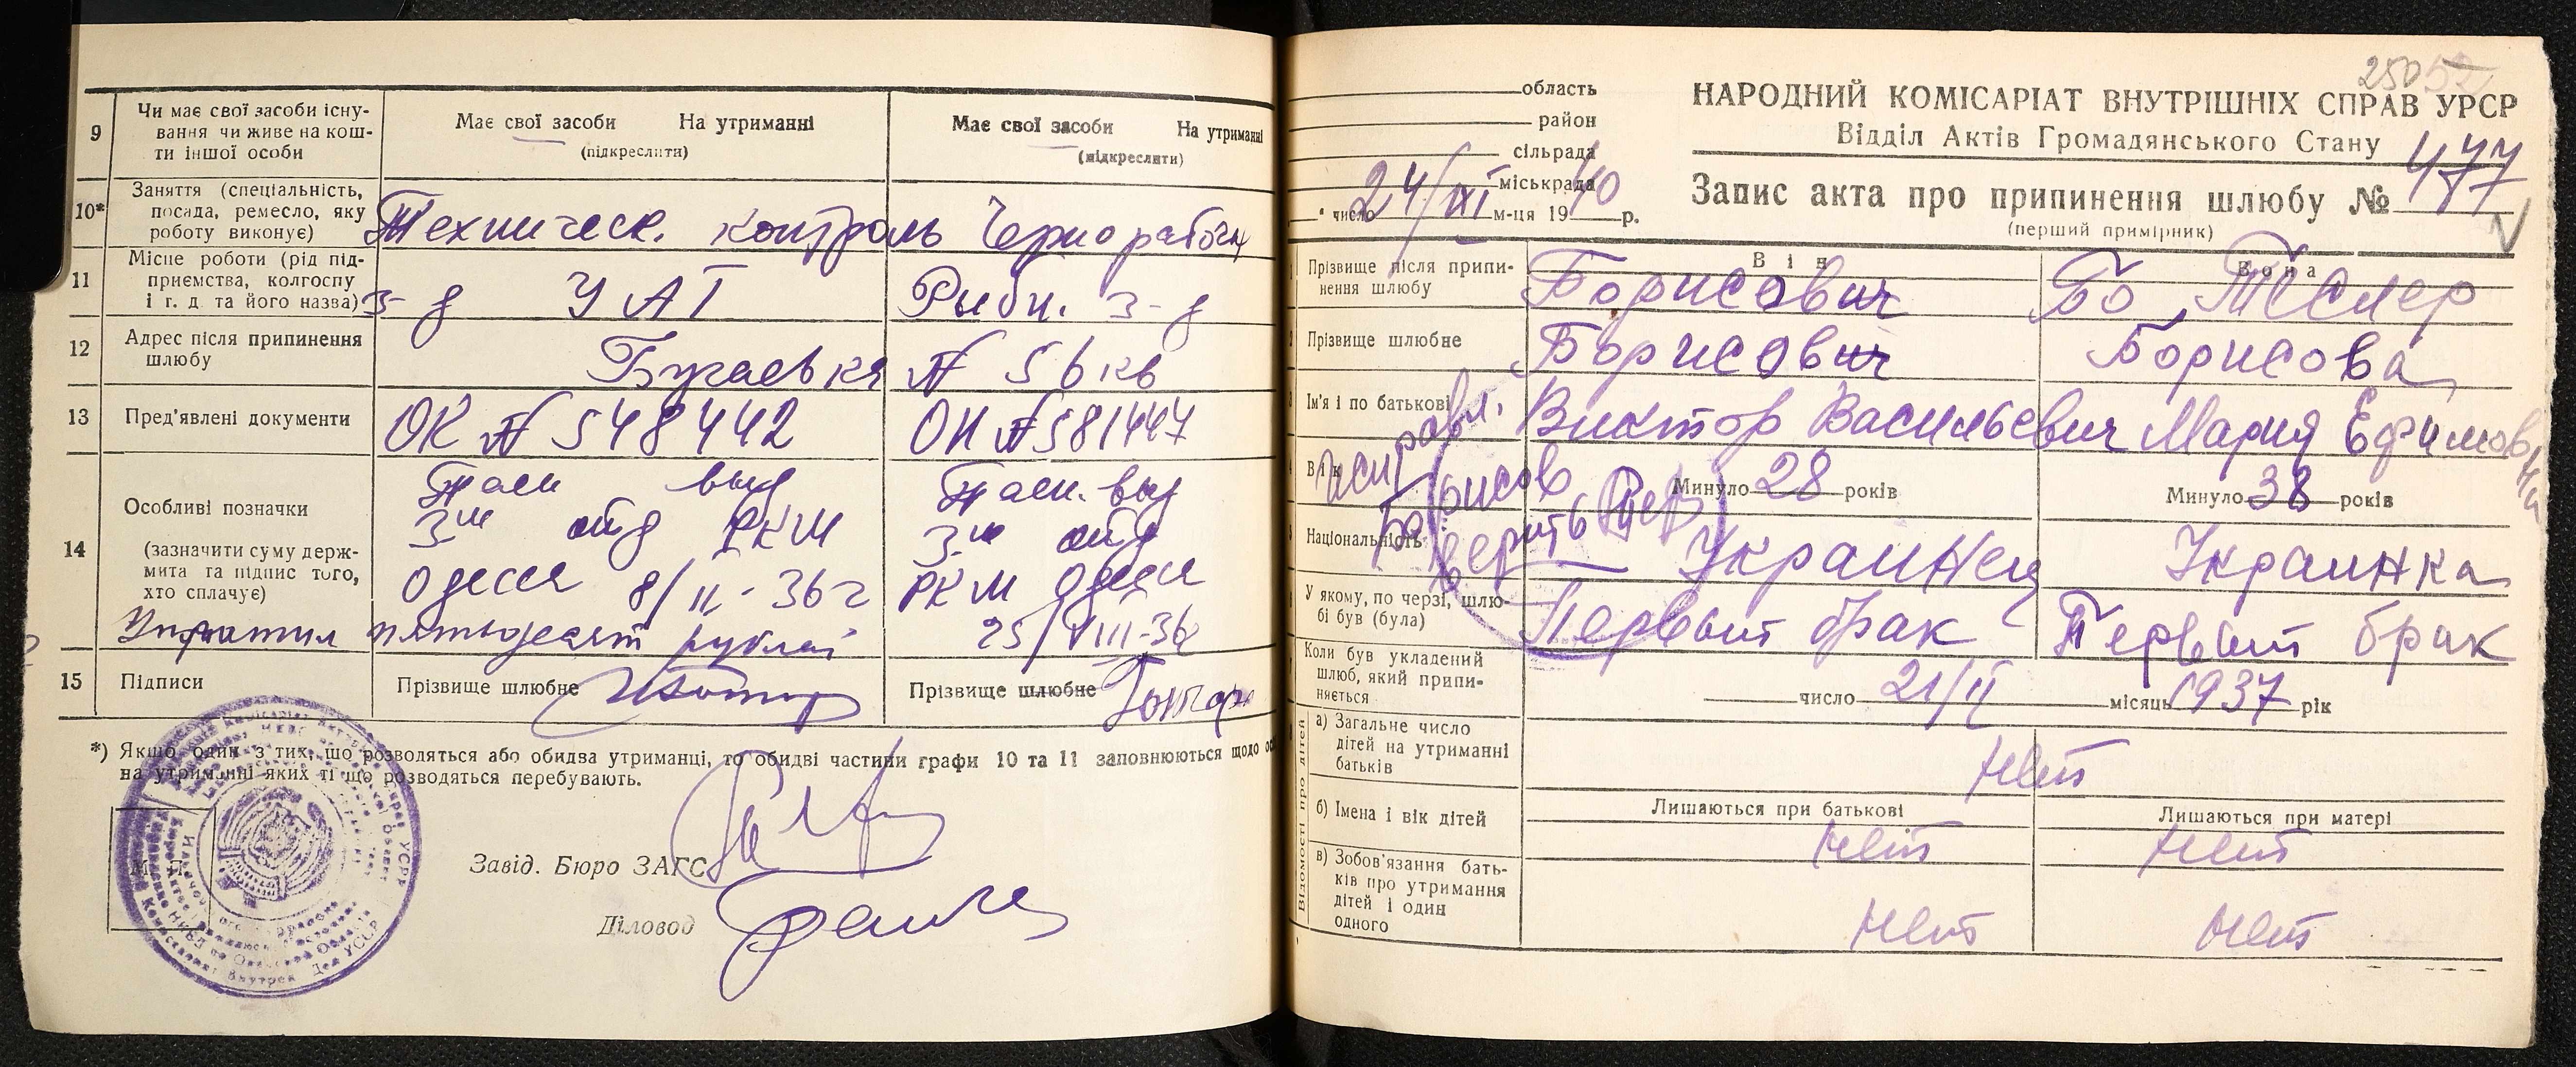 9
Чи має свої засоби існу-
вання чи живе на кош-
ти іншої особи
Має свої засоби На утриманні
(підкреслити)
Має свої засоби На утриманні
(підкреслити)
10*
Заняття (спеціальність,
посада, ремесло, яку
роботу виконує)
Техническ. контроль
Чернорабочи
11
Місце роботи (рід під-
приємства, колгоспу
і т. д та його назва)
з-д УАТ
Рыбн. з-д
12
Адрес після припинення
шлюбу
Бугаевка № 56 кв
13
Пред'явлені документи
ОК № 548442
ОН № 581447
14
Особливі позначки
(зазначити суму держ-
мита та підпис того,
хто сплачує)
Пасп выд
3м отд РКМ
Одесса 8/II-36 г
Пасп. выд
3-м отд
РКМ Одесса
25/VIII-36
Упратил пятьдесят рублей
15
Підписи
Прізвище шлюбне
Прізвище шлюбне
*) Якщо один з тих, що розводяться або обидва утриманці, то обидві частини графи 10 та 11 заповнюються щодо
на утриманні яких ті що розводяться перебувають.
М. П.
Завід. Бюро ЗАГС
Діловод
250
область
район
сільрада
міськрада
24/XI 40
число м-ця 19 р.
НАРОДНИЙ КОМІСАРІАТ ВНУТРІШНІХ СПРАВ УРСР
Відділ Актів Громадянського Стану
Запис акта про припинення шлюбу № 477
(перший примірник)
Він
Вона
Прізвище після припи-
нення шлюбу
Борисович
Бо Теслер
Прізвище шлюбне
Борисович
Борисова
Ім'я і по батькові
Виктор Васильевич
Мария Ефимовна
Вік
Минуло 28 років
Минуло 38 років
исправл.
Борисов
верить
Національність
Украинец
Украинка
У якому, по черзі, шлю-
бі був (була)
Первый брак
Первый брак
Коли був укладений
шлюб, який припи-
няється
число 21/II місяць 1937 рік
Відомості про дітей
а) Загальне число
дітей на утриманні
батьків
нет
б) Імена і вік дітей
Лишаються при батькові
Лишаються при матері
нет
нет
в) Зобов'язання бать-
ків про утримання
дітей і один
одного
нет
нет